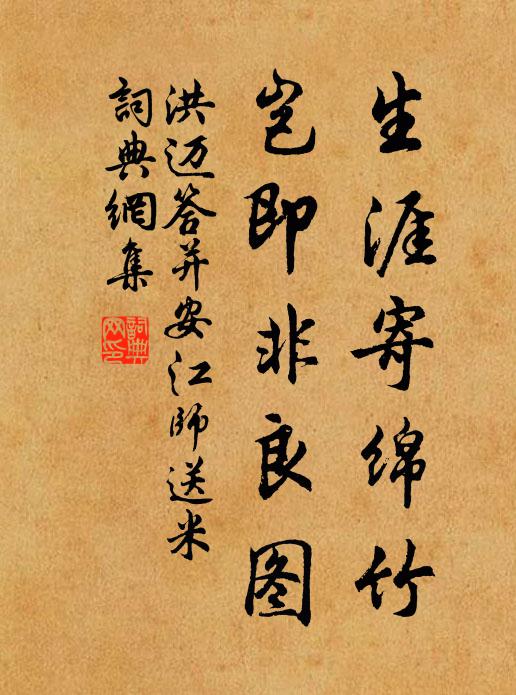 生涯寄绵竹
岂即非良图
洪迈答并安江师送米
詞典網集
詞典网印